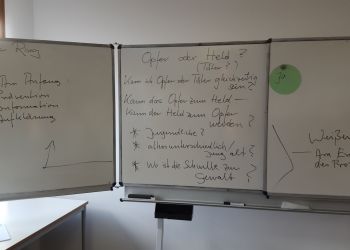 Ring
Am Anfang
Prävention
Information
Aufklärung
Opfer oder Held?
(Täter?)
Kann ich Opfer oder Täter gleichzeitig
sein?
Kann das Opfer zum Held –
Kann der Held zum Opfer
werden?
* Jugendliche?
* alterunterschiedlich /
jung alt?
* Wo ist die Schwelle zur
Gewalt?
ja
Weißer
Am En
der Pro